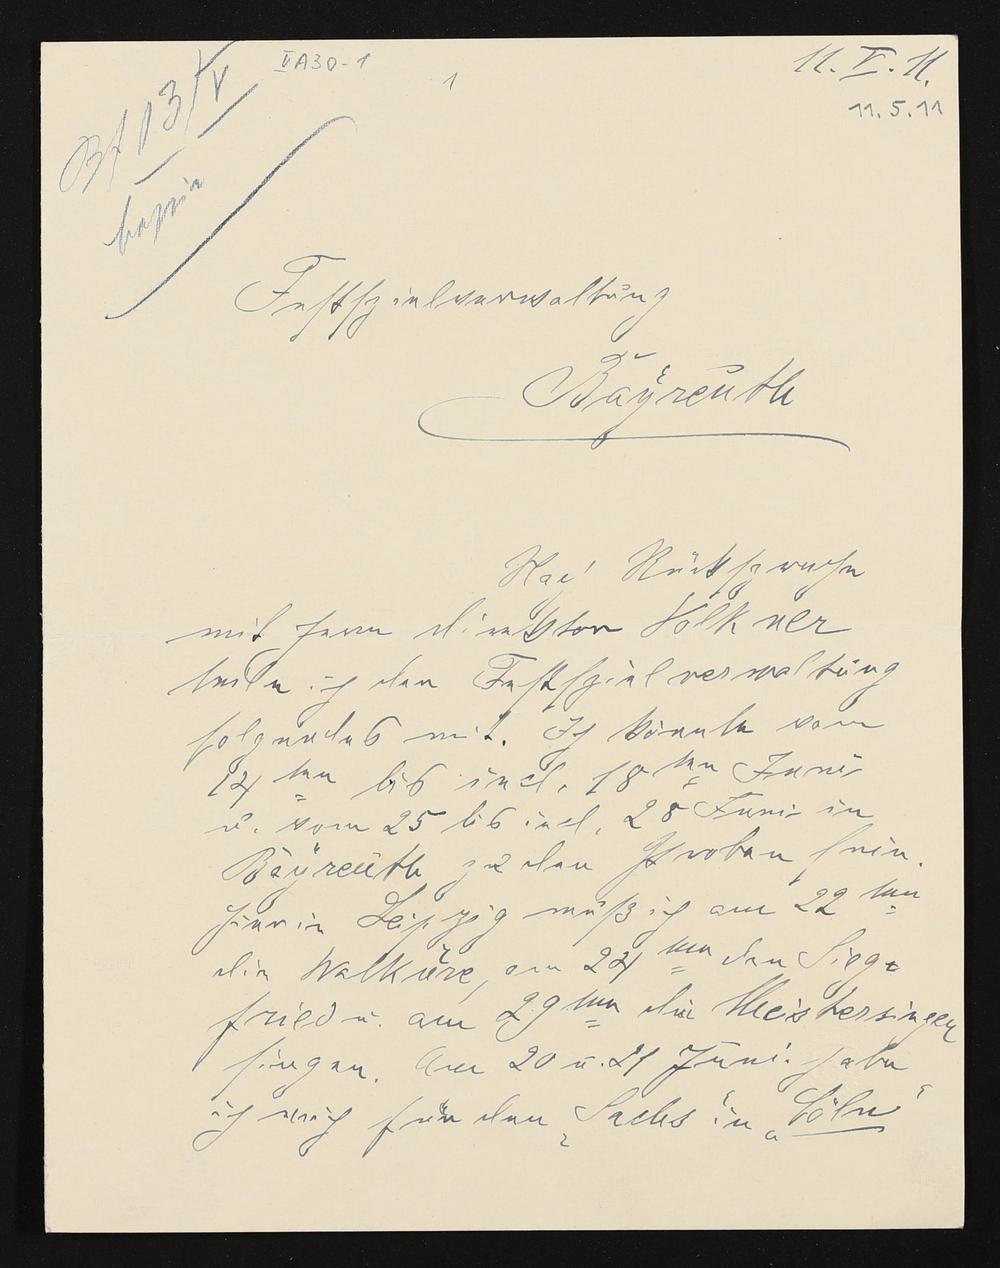 VA30-1
1
11. V. 11.
11. 5. 11
Bf 13/V
Festspielverwaltung
Bayreuth
Nach Rücksprache
mit Herrn Direktor Volkner
teile ich der Festspielverwaltung
folgendes mit. Ich könnte vom
14ten bis incl. 18ten Juni
u. vom 25 bis incl. 28 Juni in
Bayreuth zu den Proben sein.
Hier in Leipzig muß ich am 22ten
die Walküre, am 24ten den Sieg-
fried u. am 29ten die Meistersinger
singen. Am 20 u. 21 Juni habe
ich mich für den „Sachs" in „Cöln"